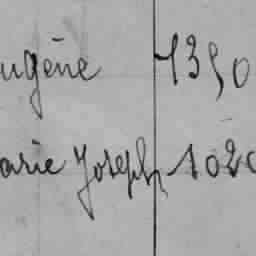 ugène 1350
arie Joseph 1020